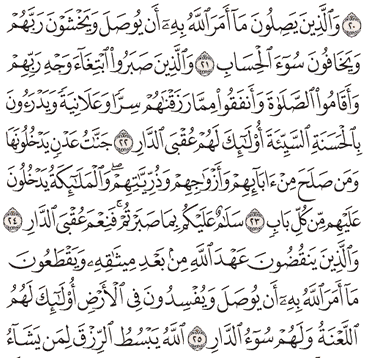 ٢٠ وَٱلَّذِينَ يَصِلُونَ مَآ أَمَرَ ٱللَّهُ بِهِۦٓ أَن يُوصَلَ وَيَخْشَوْنَ رَبَّهُمْ
وَيَخَافُونَ سُوٓءَ ٱلْحِسَابِ ٢١ وَٱلَّذِينَ صَبَرُوا۟ ٱبْتِغَآءَ وَجْهِ رَبِّهِمْ
وَأَقَامُوا۟ ٱلصَّلَوٰةَ وَأَنفَقُوا۟ مِمَّا رَزَقْنَٰهُمْ سِرًّا وَعَلَانِيَةً وَيَدْرَءُونَ
بِٱلْحَسَنَةِ ٱلسَّيِّئَةَ أُو۟لَٰٓئِكَ لَهُمْ عُقْبَى ٱلدَّارِ ٢٢ جَنَّٰتُ عَدْنٍ يَدْخُلُونَهَا
وَمَن صَلَحَ مِنْ ءَابَآئِهِمْ وَأَزْوَٰجِهِمْ وَذُرِّيَّٰتِهِمْ ۖ وَٱلْمَلَٰٓئِكَةُ يَدْخُلُونَ
عَلَيْهِم مِّن كُلِّ بَابٍ ٢٣ سَلَٰمٌ عَلَيْكُم بِمَا صَبَرْتُمْ ۚ فَنِعْمَ عُقْبَى ٱلدَّارِ ٢٤
وَٱلَّذِينَ يَنقُضُونَ عَهْدَ ٱللَّهِ مِنۢ بَعْدِ مِيثَٰقِهِۦ وَيَقْطَعُونَ
مَآ أَمَرَ ٱللَّهُ بِهِۦٓ أَن يُوصَلَ وَيُفْسِدُونَ فِى ٱلْأَرْضِ أُو۟لَٰٓئِكَ لَهُمُ
ٱللَّعْنَةُ وَلَهُمْ سُوٓءُ ٱلدَّارِ ٢٥ ٱللَّهُ يَبْسُطُ ٱلرِّزْقَ لِمَن يَشَآءُ